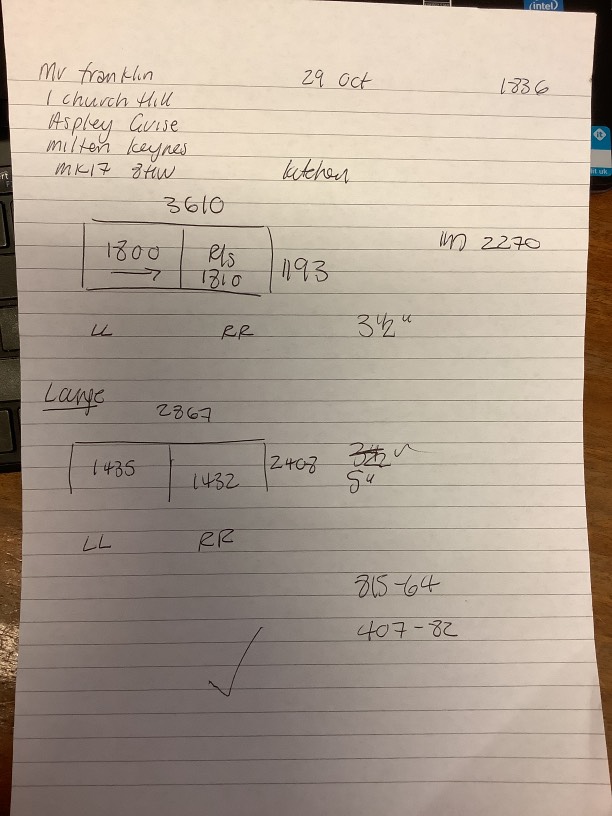 Mr franklin 29 Oct 1836
1 church Hill
Aspley Guise
milton keynes
MK17 8HW kitchen
3610
1800 R/s 1193 2270
1810
LL RR 3 1/2"
Large
2867
1435 1432 2408
5"
LL RR
815-64
407-82
(intel)